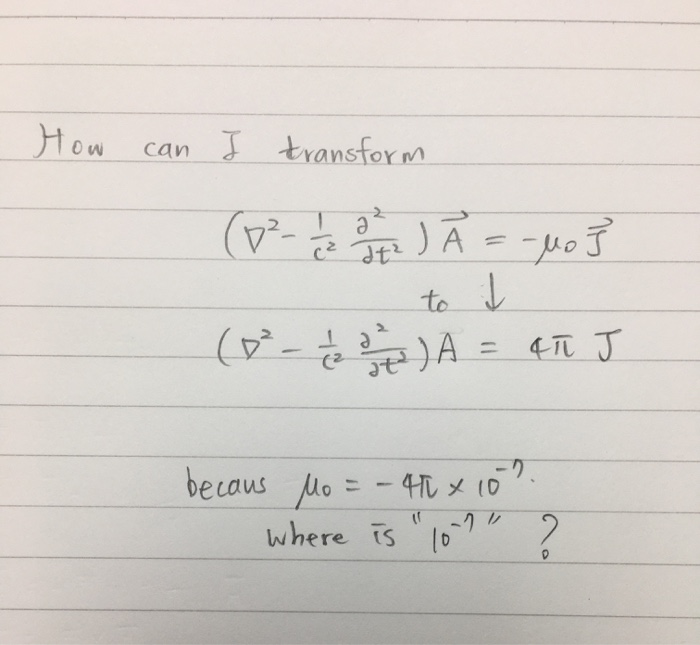 How can I transform
(∇² - 1/c² ∂²/∂t²) A⃗ = -μ₀ J⃗
to ↓
(∇² - 1/c² ∂²/∂t²) A = 4π J
becaus μ₀ = - 4π × 10⁻⁷.
where is "10⁻⁷" ?